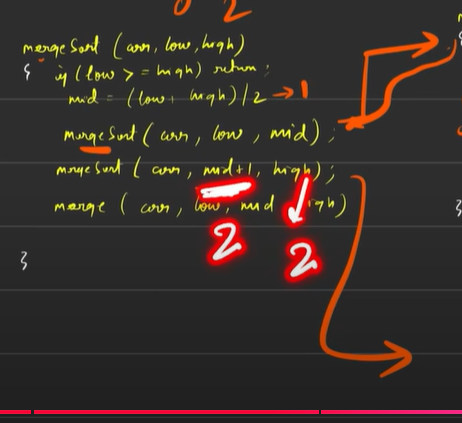 2
mergeSort (arr, low, high)
{ if (low >= high) return;
mid = (low + high)/2 → 1
mergeSort ( arr, low, mid);
mergeSort ( arr, mid+1, high);
merge ( arr, low, mid high)
2
2
}